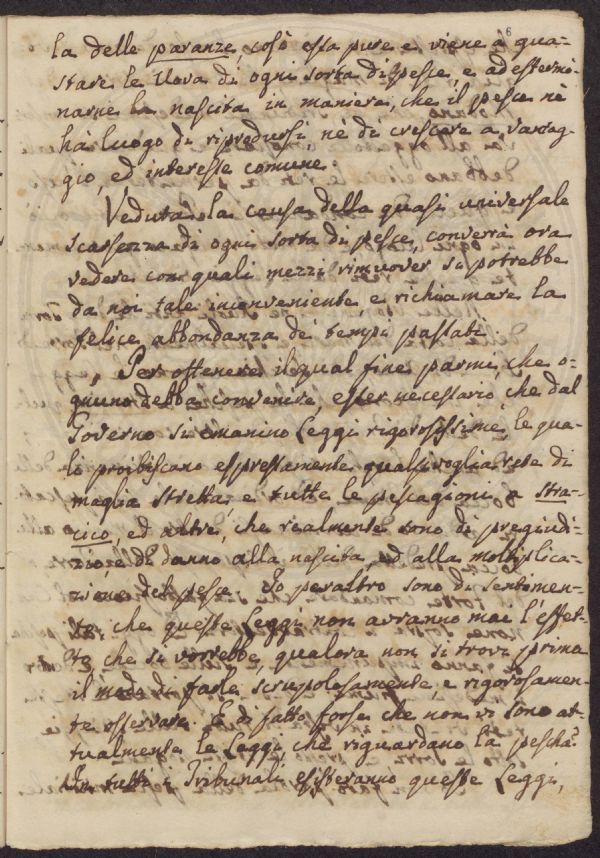 6
la delle paranze, così essa pure e viene a gua-
stare le Uova di ogni sorta di pesce, e ad estermi-
narne la nascita in maniera, che il pesce nè
hà luogo di riprodursi, nè di crescere a vantag-
gio, ed interesse comune.
Veduta la causa della quasi universale
scarsezza di ogni sorta di pesce, converrà ora
vedere con quali mezzi rimuover si potrebbe
da noi tale inconveniente, e richiamare la
felice abbondanza dei tempi passati.
Per ottenere il qual fine parmi, che o-
gnuno debba convenire, esser necessario che dal
Governo si emanino Leggi rigorosissime, le qua-
li proibiscano espressamente qualsivoglia rete di
maglia stretta, e tutte le pescagioni a stra-
cico, ed altre, che realmente sono di pregiudi-
zio, e di danno alla nascita, ed alla moltiplica-
zione del pesce. Io peraltro sono di sentimen-
to, che queste Leggi non avranno mai l'effet-
to che si vorrebbe, qualora non si trovi prima
il modo di farle scrupolosamente, e rigorosamen-
te osservare. E di fatto forse che non vi sono at-
tualmente le Leggi, che riguardano la pescha?
In tutti i Tribunali esisteranno queste Leggi,